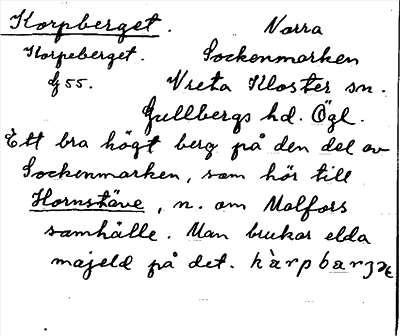 Korpberget. Norra
Korpeberget. Sockenmarken
lf 55. Vreta Kloster sn.
Gullbergs hd. Ögl.
Ett bra högt berg på den del av
Sockenmarken, som hör till
Hornstäve, n. om Malfors
samhälle. Man brukar elda
majeld på det.